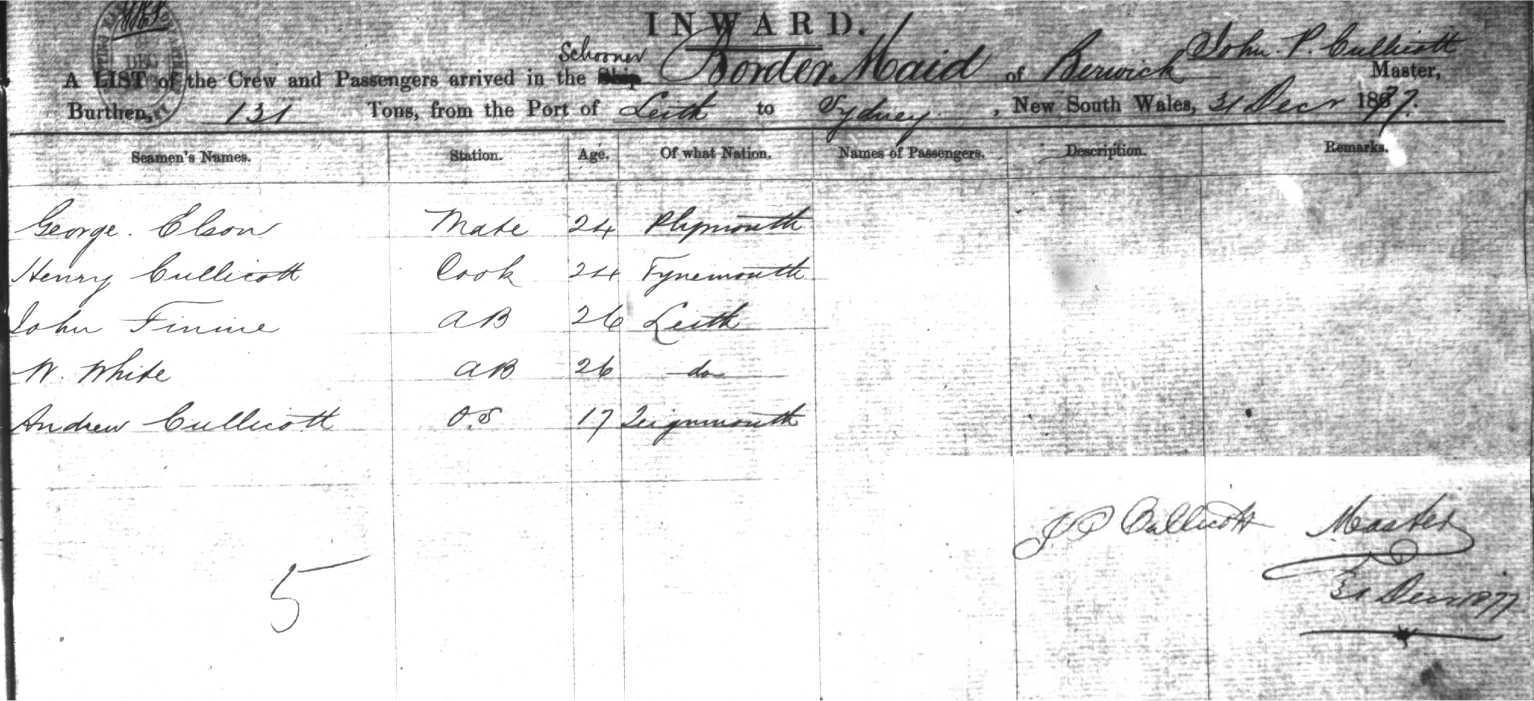 INWARD.
A LIST of the Crew and Passengers arrived in the Schooner Border Maid of Berwick John. P. Cullicott Master,
Burthen, 131 Tons, from the Port of Leith to Sydney, New South Wales, 31 Decr 1877.
Seamen's Names. Station. Age. Of what Nation. Names of Passengers. Description. Remarks.
George. Elson Mate 24 Plymouth
Henry Cullicott Cook 24 Tynemouth
John Finine AB 26 Leith
W. White AB 26 do
Andrew Cullicott O.S 17 Teignmouth
J P Cullicott Master
5
31 Decr 1877